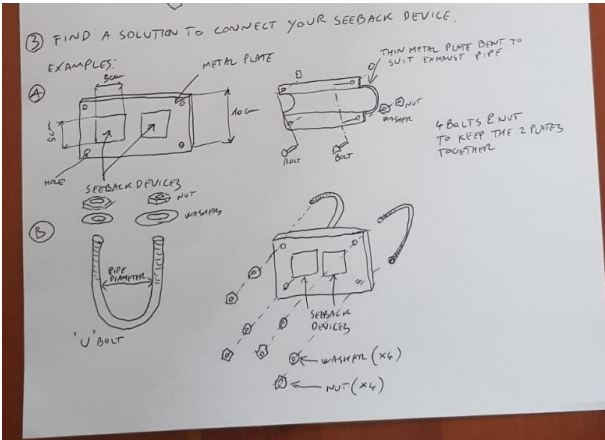 ③ FIND A SOLUTION TO CONNECT YOUR SEEBACK DEVICE.
EXAMPLES:
A
5cm
METAL PLATE
5cm
10cm
HOLE
SEEBACK DEVICES
THIN METAL PLATE BENT TO
SUIT EXHAUST PIPE
NUT
WASHER
BOLT
BOLT
4 BOLTS & NUT
TO KEEP THE 2 PLATES
TOGETHER
B
NUT
WASHERS
PIPE
DIAMETER
"U" BOLT
SEEBACK
DEVICES
WASHER (x4)
NUT (x4)